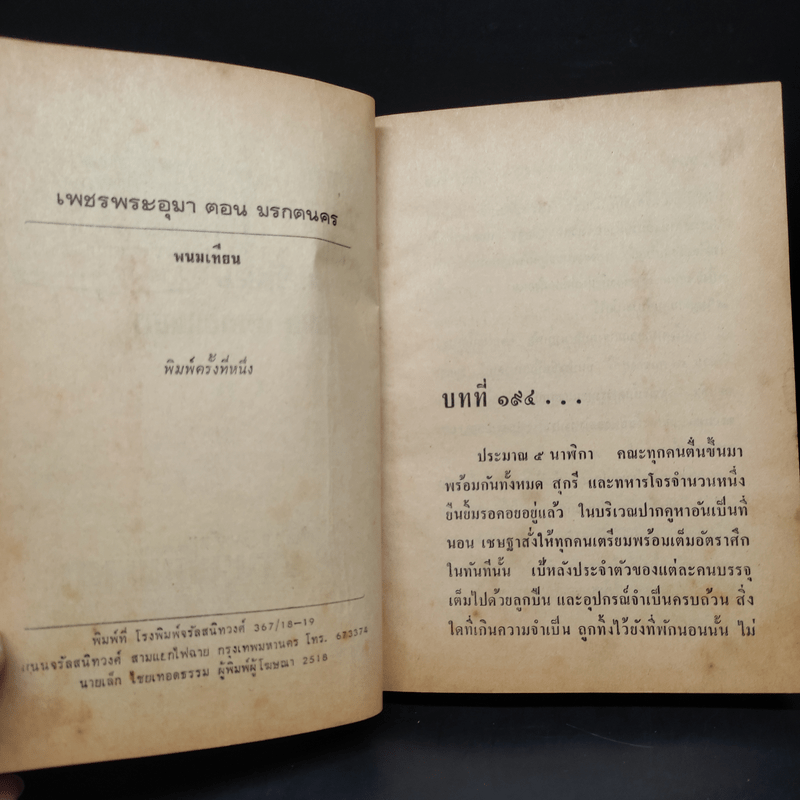 เพชรพระอุมา ตอน มรกตนคร
พนมเทียน
พิมพ์ครั้งที่หนึ่ง
พิมพ์ที่ โรงพิมพ์จรัลสนิทวงศ์ 367/18-19
ถนนจรัลสนิทวงศ์ สามแยกไฟฉาย กรุงเทพมหานคร โทร.
นายเล็ก ไชยเทอดธรรม ผู้พิมพ์ผู้โฆษณา 2518
บทที่ ๑๙๔ . . .
ประมาณ ๕ นาฬิกา คณะทุกคนตื่นขึ้นมา
พร้อมกันทั้งหมด สุกรี และทหารโจรจำนวนหนึ่ง
ยืนยิ้มรอคอยอยู่แล้ว ในบริเวณปากคูหาอันเป็นที่
นอน เชษฐาสั่งให้ทุกคนเตรียมพร้อมเต็มอัตราศึก
ในทันทีนั้น เป้หลังประจำตัวของแต่ละคนบรรจุ
เต็มไปด้วยลูกปืน และอุปกรณ์จำเป็นครบถ้วน สิ่ง
ใดที่เกินความจำเป็น ถูกทิ้งไว้ยังที่พักนอนนั้น ไม่